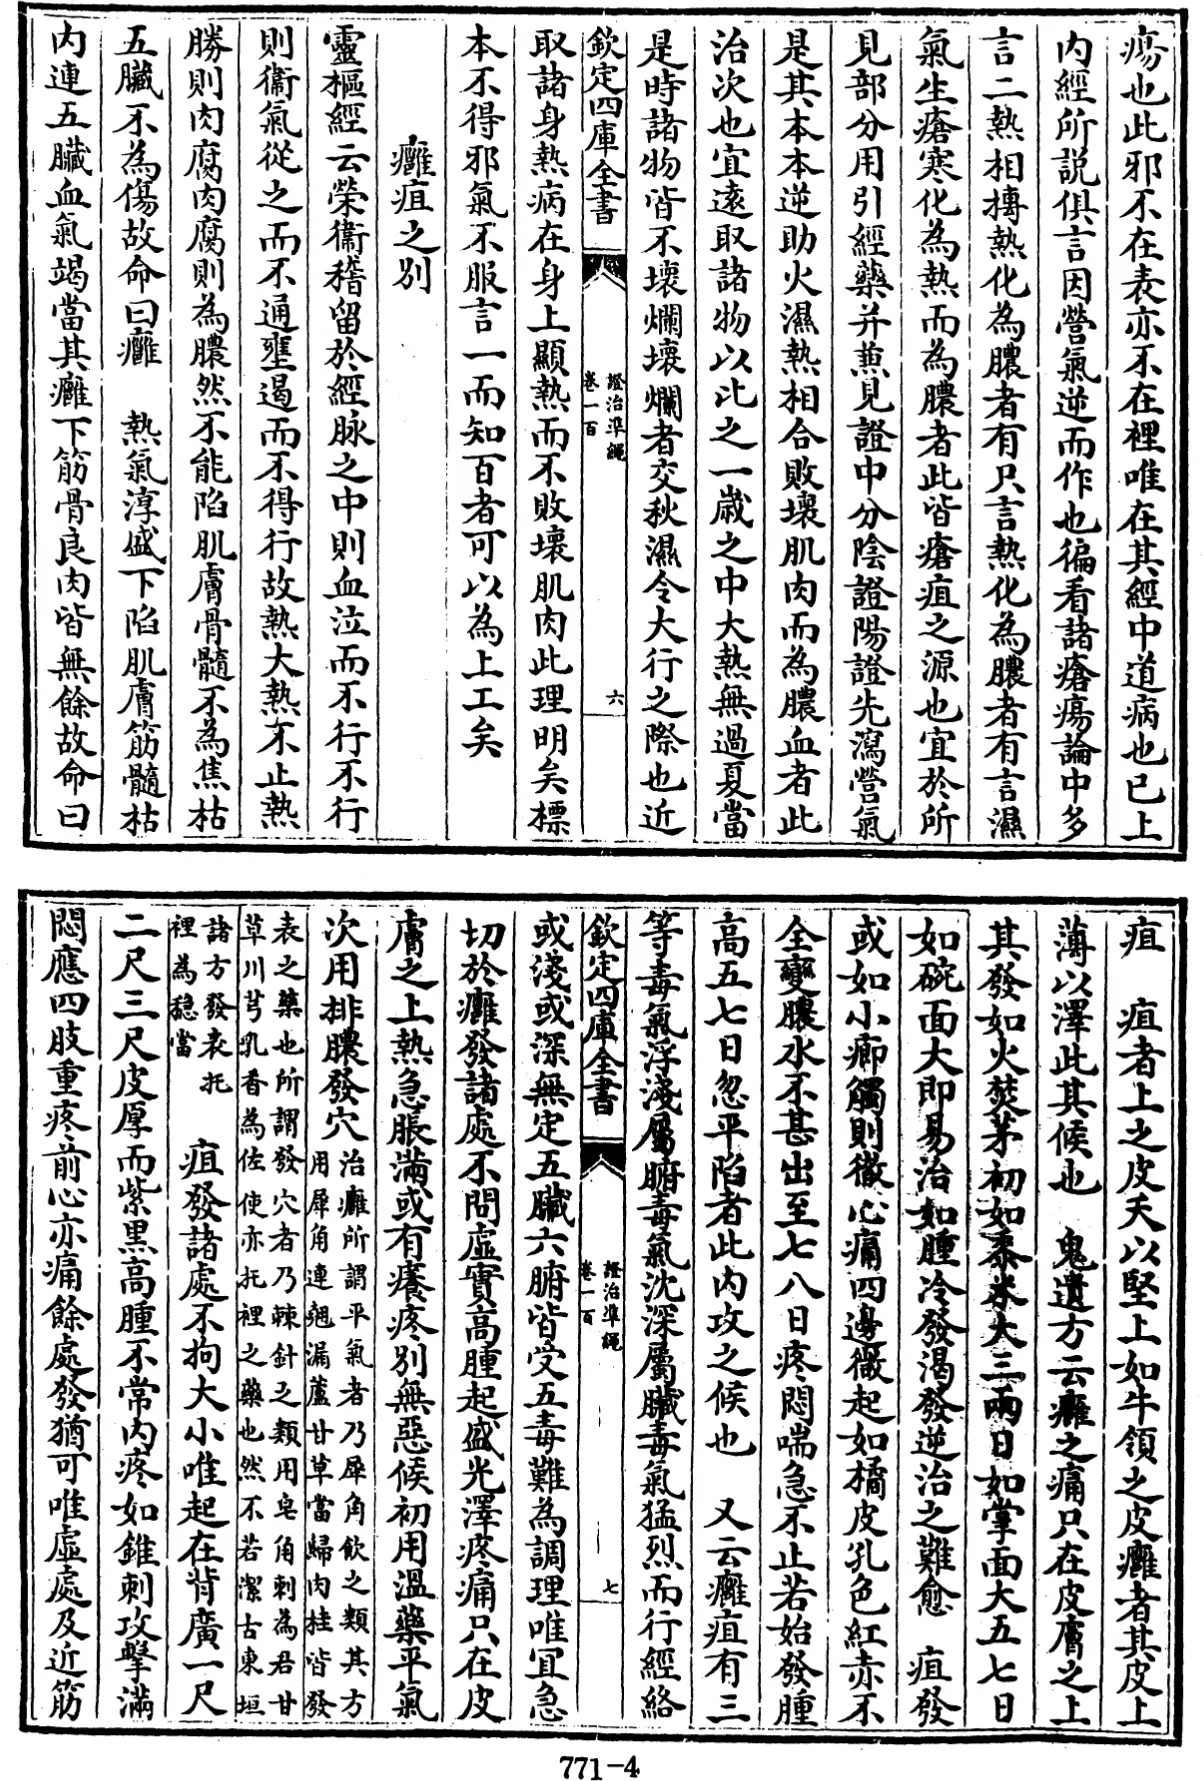 瘍也此邪不在表亦不在裡唯在其經中道病也已上
内經所説俱言因營氣逆而作也徧看諸瘡瘍論中多
言二熱相摶熱化為膿者有只言熱化為膿者有言濕
氣生瘡寒化為熱而為膿者此皆瘡疽之源也宜於所
見部分用引經藥并兼見證中分陰證陽證先瀉營氣
是其本本逆助火濕熱相合敗壞肌肉而為膿血者此
治次也宜逺取諸物以比之一歲之中大熱無過夏當
是時諸物皆不壞爛壞爛者交秋濕令大行之際也近
欽定四庫全書
證治準繩
卷一百
六
取諸身熱病在身上顯熱而不敗壞肌肉此理明矣標
本不得邪氣不服言一而知百者可以為上工矣
癰疽之别
靈樞經云榮衞稽留於經脉之中則血泣而不行不行
則衞氣從之而不通壅遏而不得行故熱大熱不止熱
勝則肉腐肉腐則為膿然不能陷肌膚骨髓不為焦枯
五臟不為傷故命曰癰 熱氣淳盛下陷肌膚筋髓枯
内連五臟血氣竭當其癰下筋骨良肉皆無餘故命曰
疽 疽者上之皮夭以堅上如牛領之皮癰者其皮上
薄以澤此其候也 鬼遺方云癰之痛只在皮膚之上
其發如火焚茅初如黍米大三兩日如掌面大五七日
如碗面大即易治如腫冷發渴發逆治之難愈 疽發
或如小癤觸則徹心痛四邊微起如橘皮孔色紅赤不
全變膿水不甚出至七八日疼悶喘急不止若始發腫
高五七日忽平陷者此内攻之候也 又云癰疽有三
等毒氣浮淺屬腑毒氣沈深屬臟毒氣猛烈而行經絡
欽定四庫全書
證治準繩
卷一百
七
或淺或深無定五臟六腑皆受五毒難為調理唯宜急
切於癰發諸處不問虛實高腫起盛光澤疼痛只在皮
膚之上熱急脹滿或有癢疼别無惡候初用溫藥平氣
次用排膿發穴治癰所謂平氣者乃犀角飲之類其方
用犀角連翹漏蘆甘草當歸肉桂皆發
表之藥也所謂發穴者乃棘針之類用皂角刺為君甘
草川芎乳香為佐使亦托裡之藥也然不若潔古東垣
諸方發表托
裡為穏當
疽發諸處不拘大小唯起在背廣一尺
二尺三尺皮厚而紫黑高腫不常内疼如錐刺攻擊滿
悶應四肢重疼前心亦痛餘處發猶可唯虛處及近筋
771-4